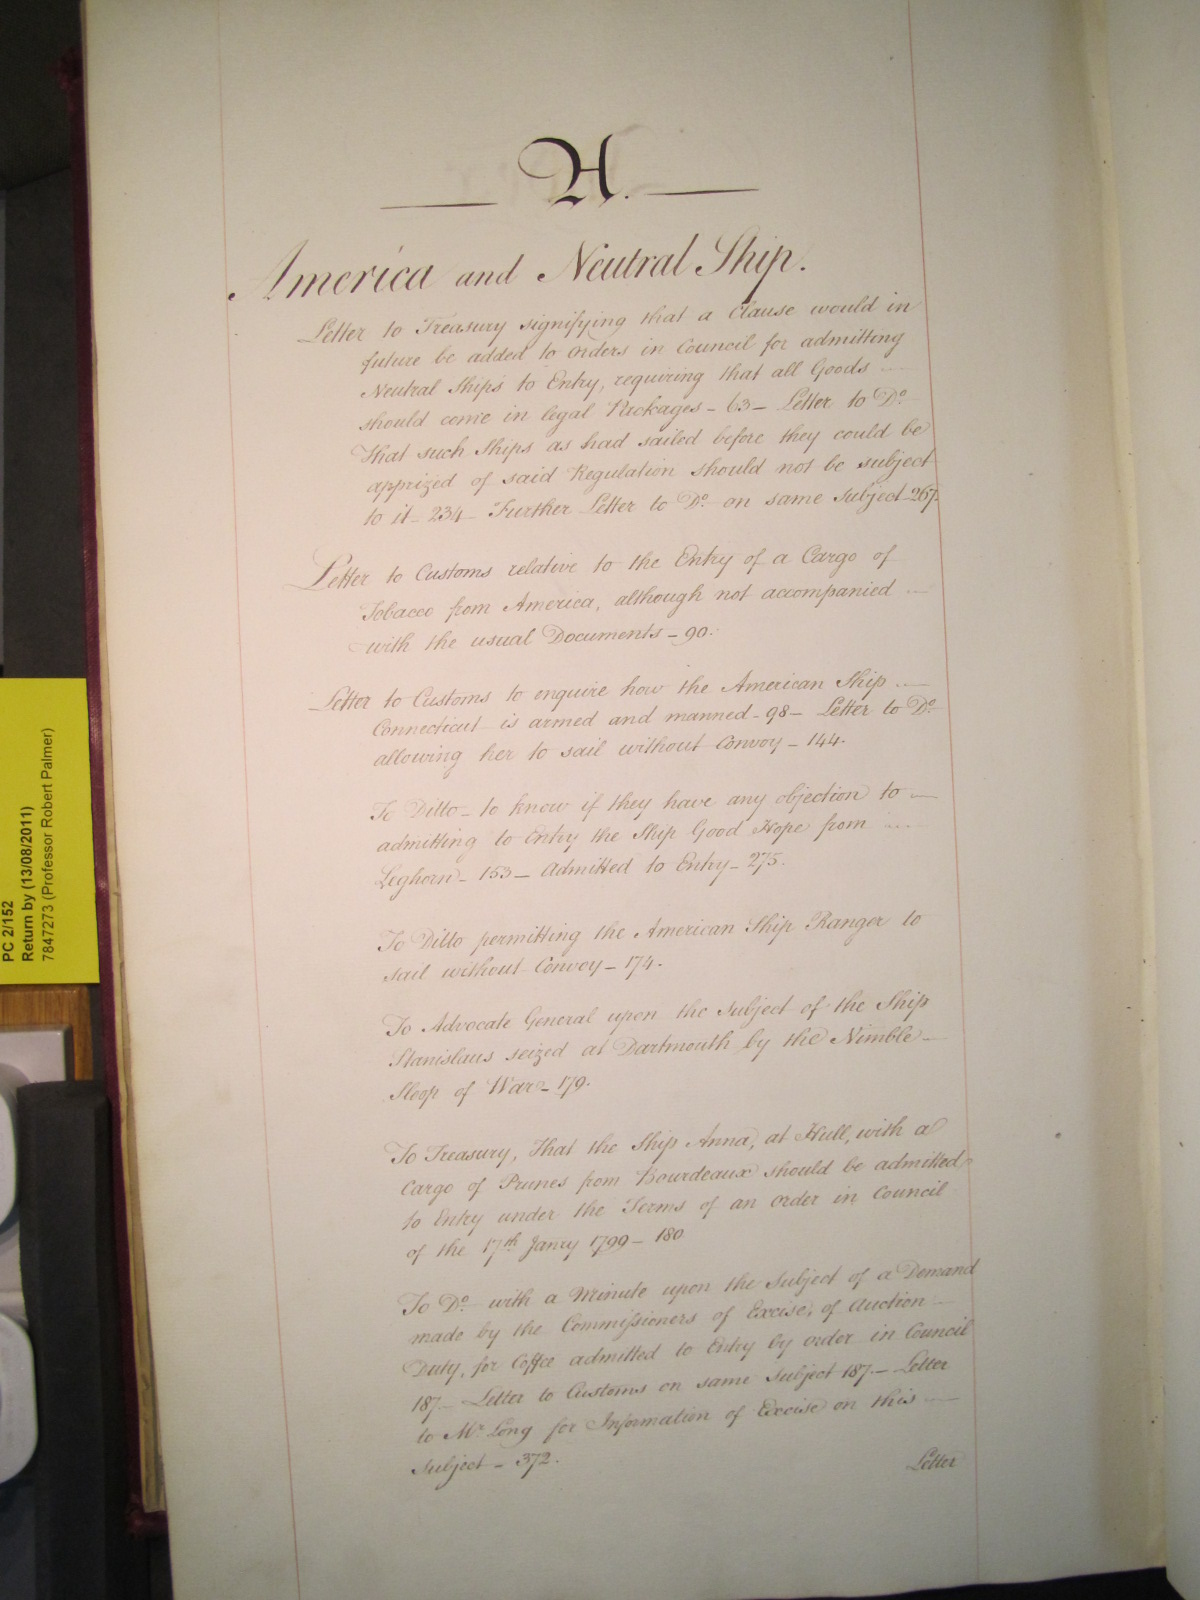 A.
America and Neutral Ship.
Letter to Treasury signifying that a Clause would in
future be added to Orders in Council for admitting
Neutral Ships to Entry, requiring that all Goods
should come in legal Packages - 63 - Letter to Do.
That such Ships as had sailed before they could be
apprized of said Regulation should not be subject
to it - 234 - Further Letter to Do. on same Subject - 267.
Letter to Customs relative to the Entry of a Cargo of
Tobacco from America, although not accompanied
with the usual Documents - 90.
Letter to Customs to enquire how the American Ship
Connecticut is armed and manned - 98 - Letter to Do.
allowing her to sail without Convoy - 144.
To Ditto - to know if they have any objection to
admitting to Entry the Ship Good Hope from
Leghorn - 153 - Admitted to Entry - 275.
To Ditto permitting the American Ship Ranger to
sail without Convoy - 174.
To Advocate General upon the Subject of the Ship
Stanislaus seized at Dartmouth by the Nimble
Sloop of War - 179.
To Treasury, That the Ship Anna, at Hull, with a
Cargo of Prunes from Bourdeaux should be admitted
to Entry under the Terms of an Order in Council
of the 17th Janry 1799 - 180
To Do. with a Minute upon the Subject of a Demand
made by the Commissioners of Excise, of Auction
Duty, for Coffee admitted to Entry by order in Council
187 - Letter to Customs on same Subject 187. - Letter
to Mr. Long for Information of Excise on this
Subject - 372.
Letter
PC 2/152
Return by (13/08/2011)
7847273 (Professor Robert Palmer)